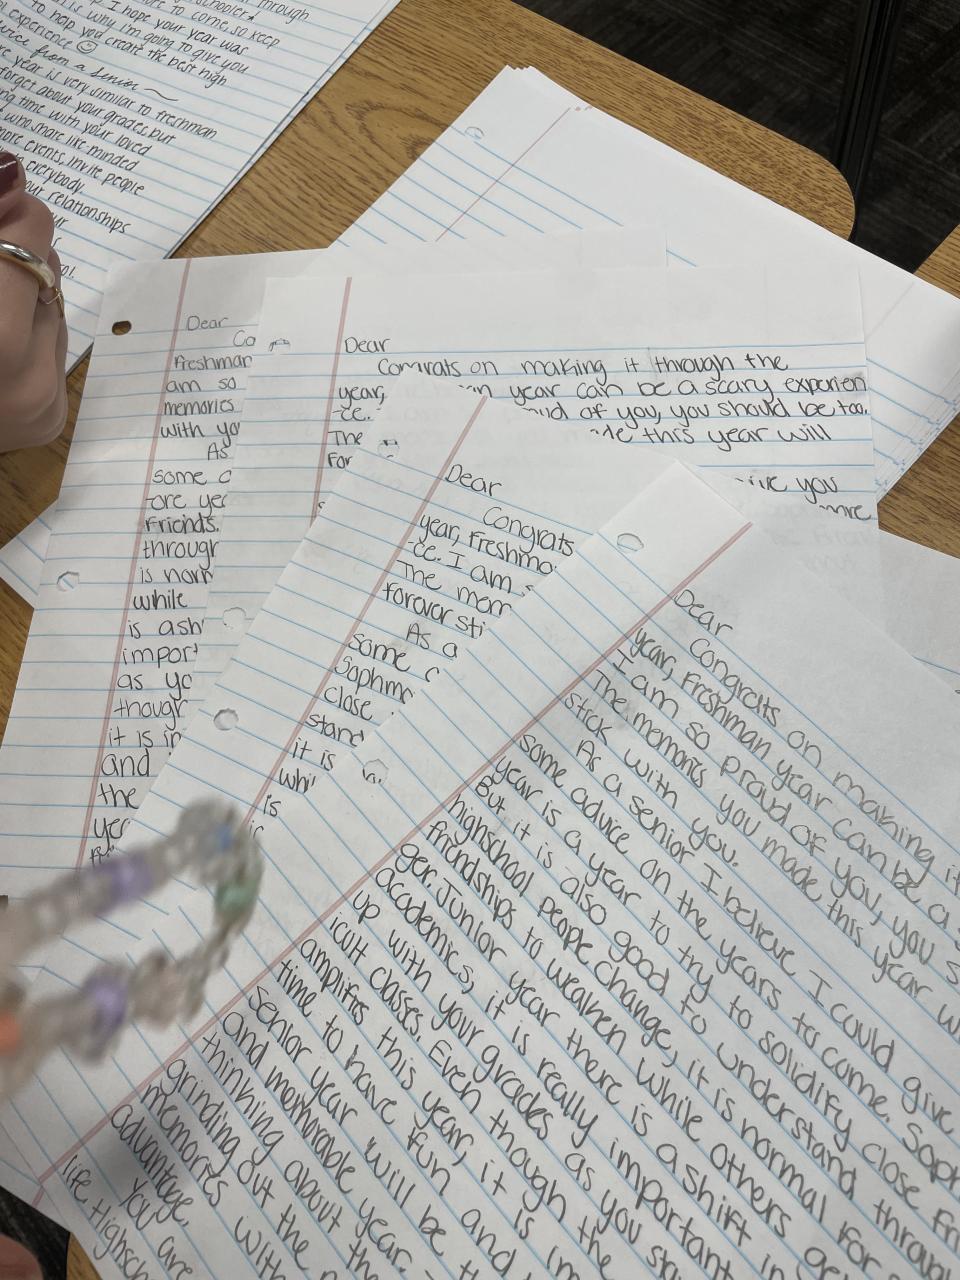 through
schooler
more to come, so keep
I hope your year was
is why I'm going to give you
to help you create the best high
experience
from a senior
year is very similar to freshman
forget about your grades, but
time with your loved
who share like-minded
more events, invite people
everybody.
our relationships
Dear
Co
freshman
am so
memories
with yo
As
some
-ore yea
friends.
through
is norm
while
is ash
import
as yo
though
it is in
and
the
Dear
Congrats on making it through the
year, year can be a scary experien
-ce. of you, you should be too.
The this year will
For
give you
more
Dear
Congrats
year, freshma
-ce. I am s
The mem
forever sti
As a
some
Saphmo
close
stand
it is
whi
is
Dear
Congrats on making it
year, Freshman year can be a s
I am so proud of you, you s
The memoris you made this year w
stick with you.
As a senior I believe I could give
some advice on the years to come. Soph
year is a year to try to solidify close fri
But it is also good to understand through
highschool people change, it is normal for
friendships to weaken while others ge
ger. Junior year there is a shift in
academics, it is really important
up with your grades as you sta
icult classes. Even though the
amplifis this year, it is im
time to have fun and
Senior year will be th
and memorable year.
thinking about the
grinding out the
memoris with
advantage.
You are
life. Highsch